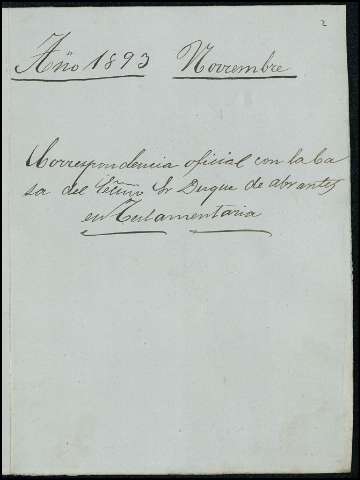 2
Año 1893 Novrembre
Correspondencia oficial con la Ca
sa del Sr Duque de abrantes
en Testamentaria